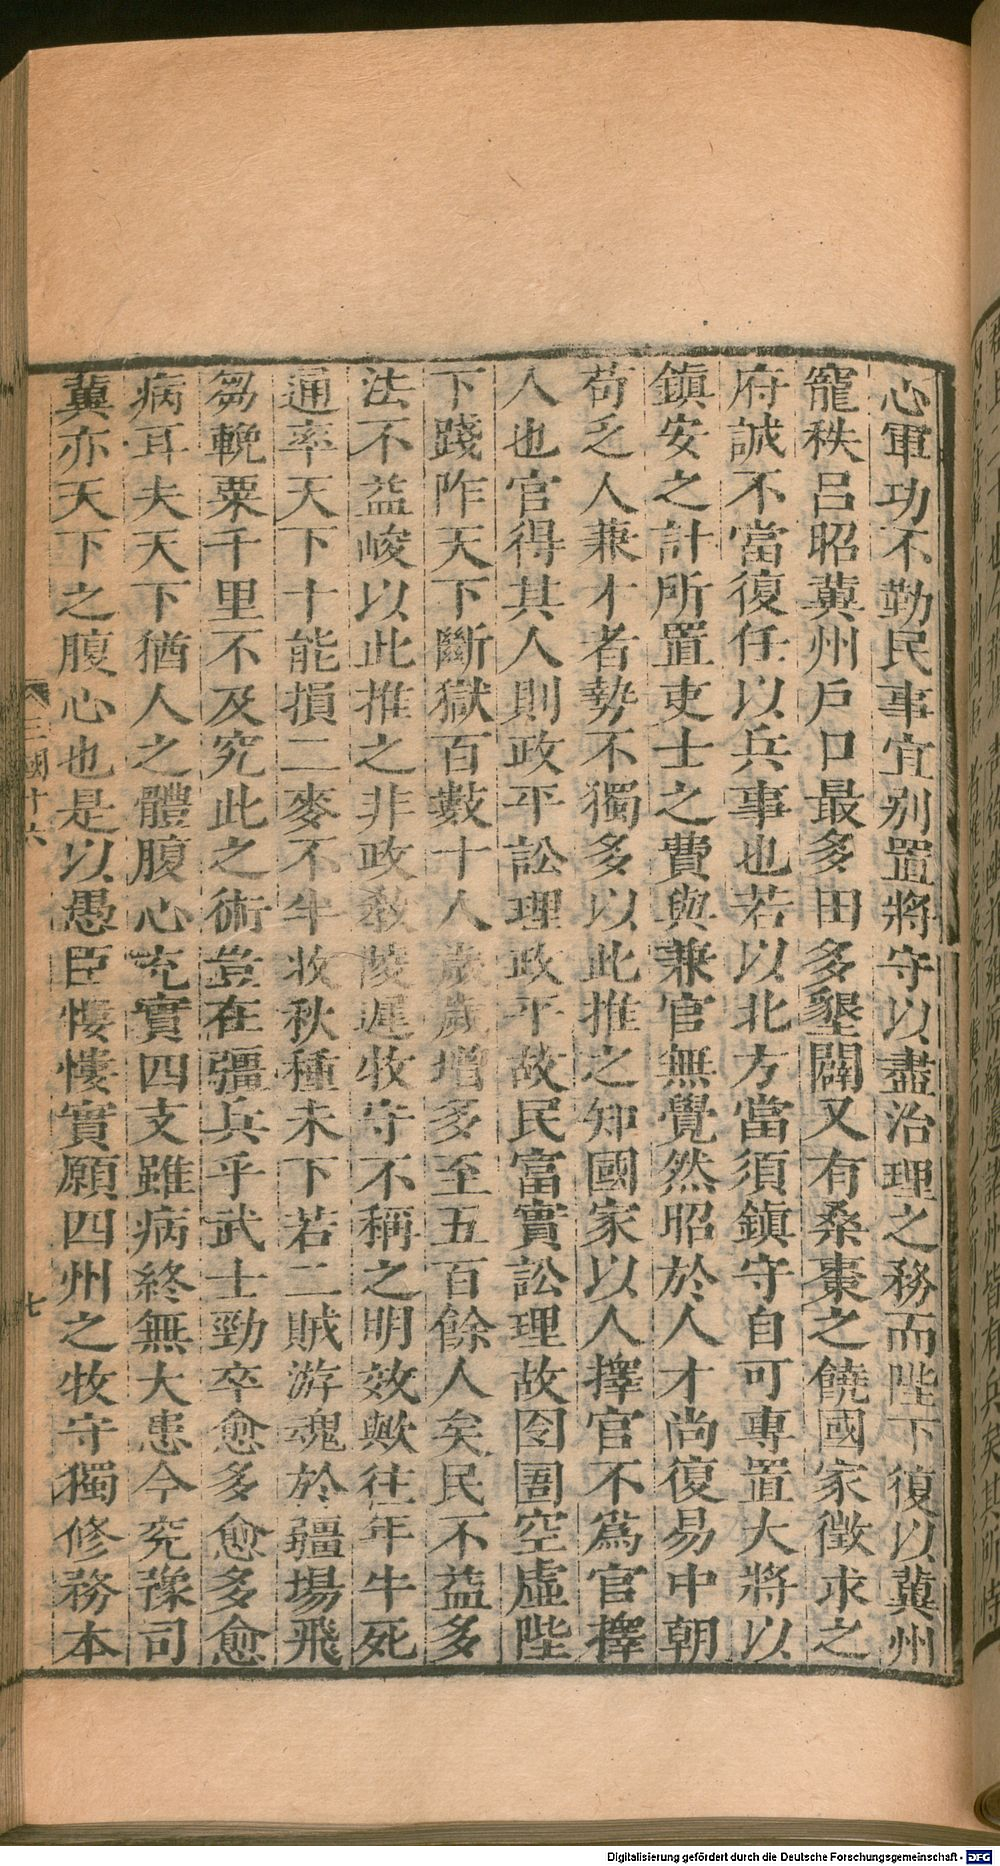 心軍功不勤民事宜别置將守以盡治理之務而陛下復以冀州
寵秩呂昭冀州戶口最多田多墾闢又有桑棗之饒國家徵求之
府誠不當復任以兵事也若以北方當須鎮守自可專置大將以
鎮安之計所置吏士之費與兼官無覺然昭於人才尚復易中朝
苟乏人兼才者勢不獨多以此推之知國家以人擇官不爲官擇
人也官得其人則政平訟理政平故民富實訟理故囹圄空虛陛
下踐阼天下斷獄百數十人歲歲增多至五百餘人矣民不益多
法不益峻以此推之非政敎陵遲牧守不稱之明效歟往年牛死
通率天下十能損二麥不半收秋種未下若二賊游魂於疆場飛
芻輓粟千里不及究此之術豈在彊兵乎武士勁卒愈多愈多愈
病耳夫天下猶人之體腹心充實四支雖病終無大患今兖豫司
冀亦天下之腹心也是以愚臣悽悽實願四州之牧守獨修務本
三國十六
七
Digitalisierung gefördert durch die Deutsche Forschungsgemeinschaft - DFG